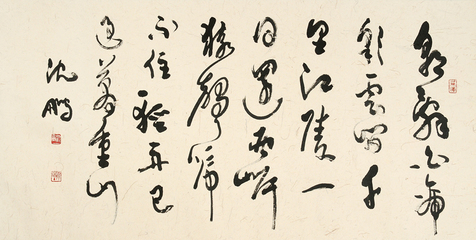 朝辭白帝
彩雲間千
里江陵一
日還兩岸
猿聲啼
不住輕舟已
過萬重山
沈鵬